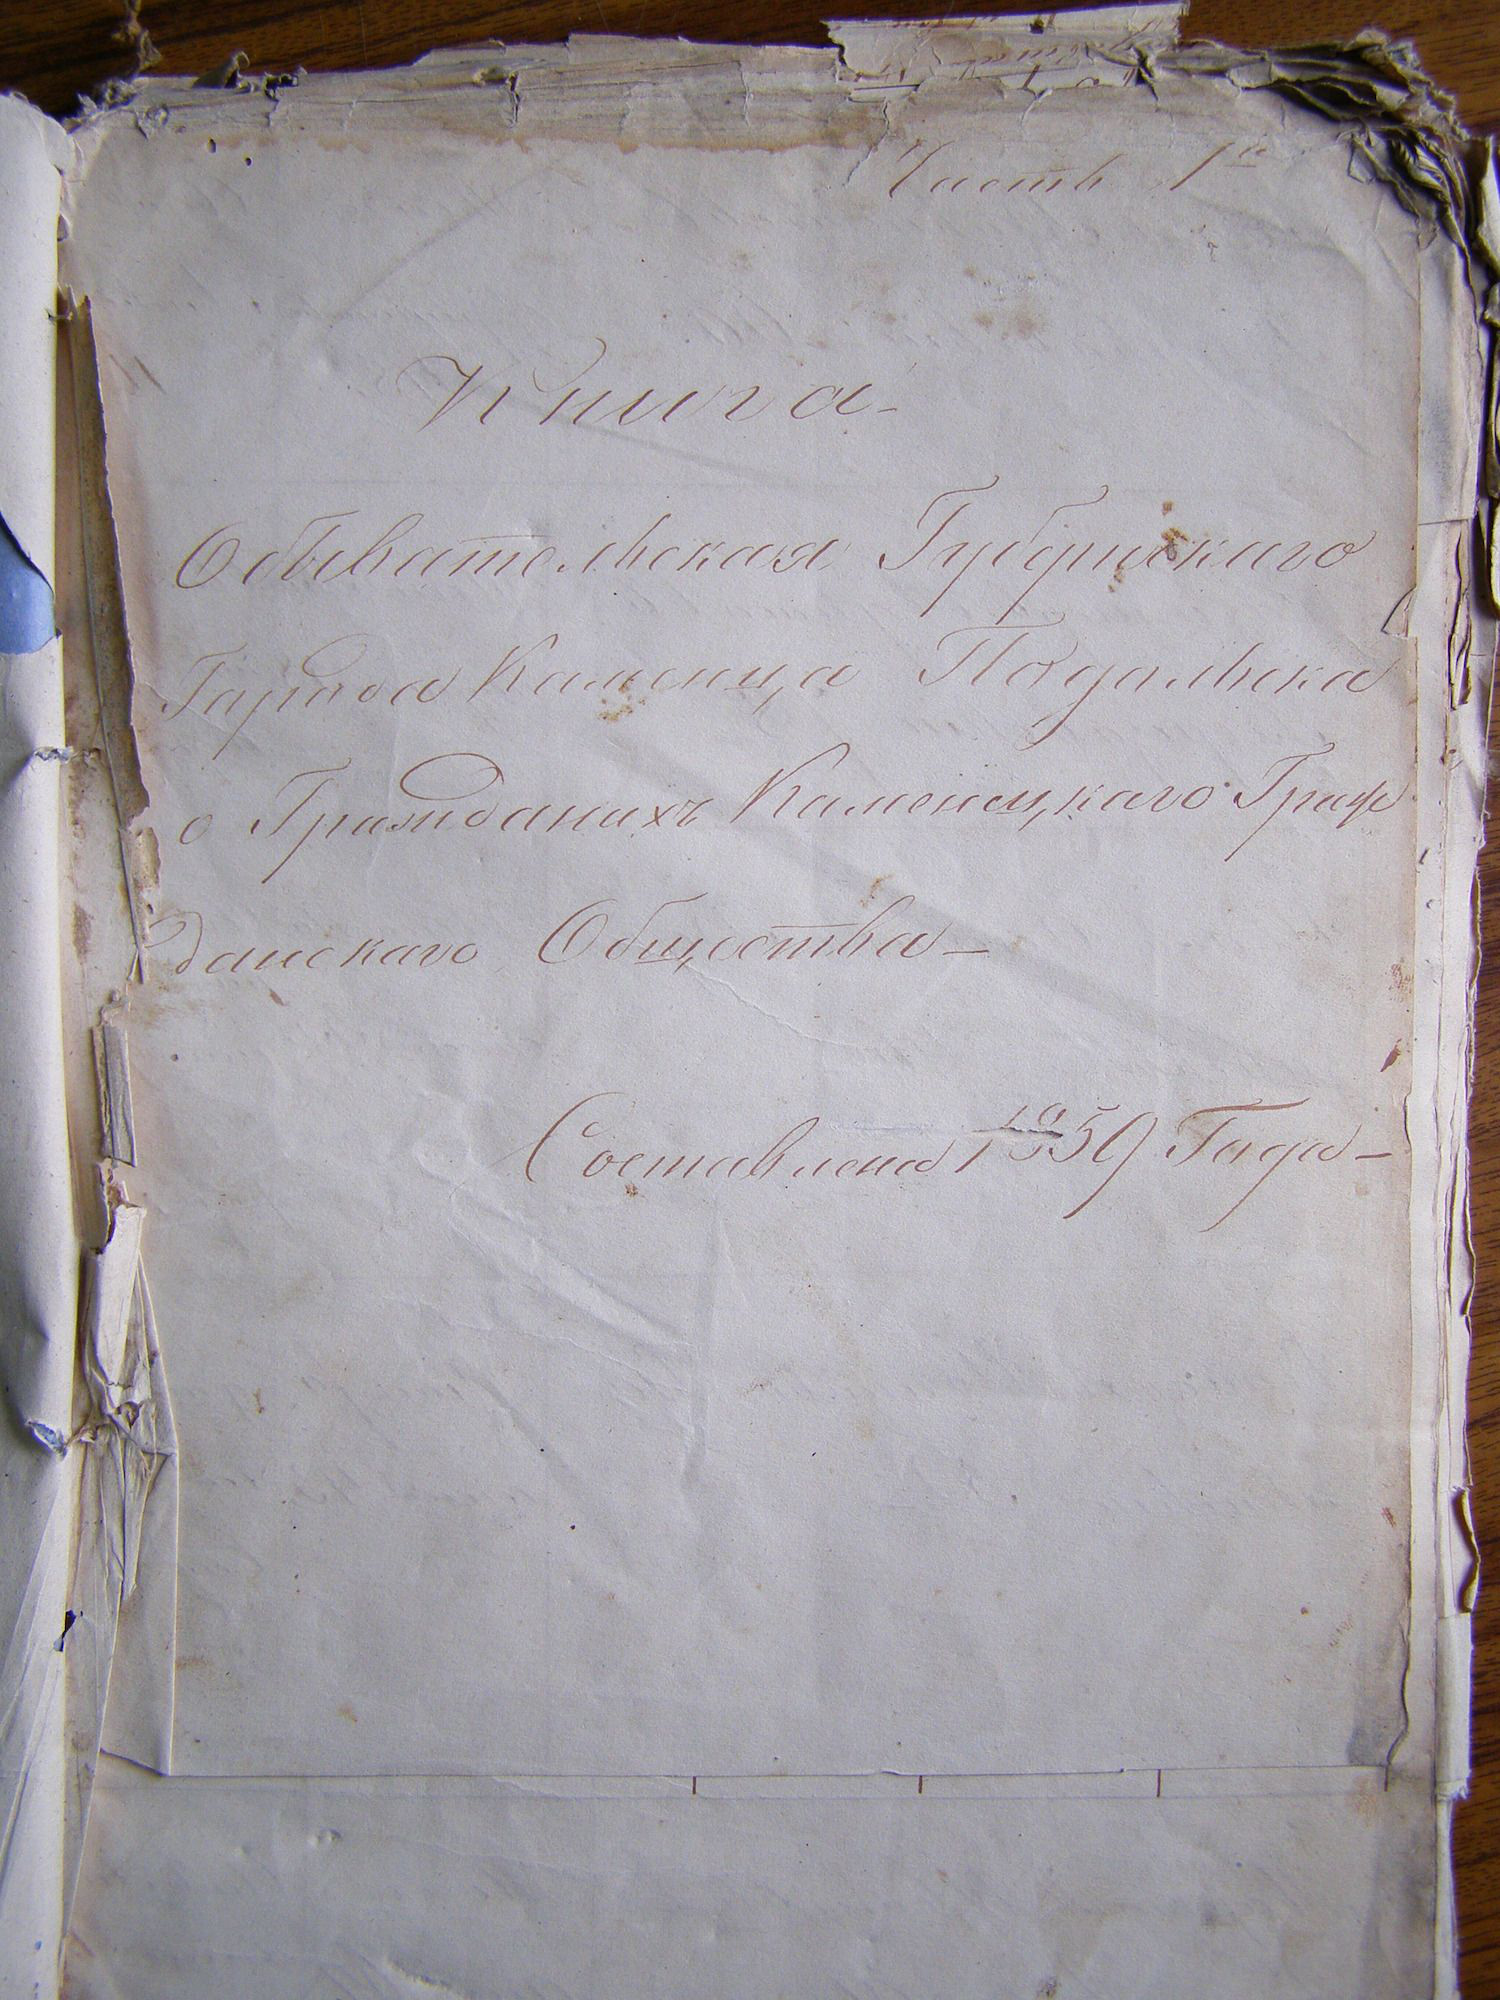 Часть 1я
Книга
Обывательская Губернскаго
Города Каменца Подольска
о Гражданахъ Каменецкаго Граж
данскаго Общества
Составлена 1859 Года